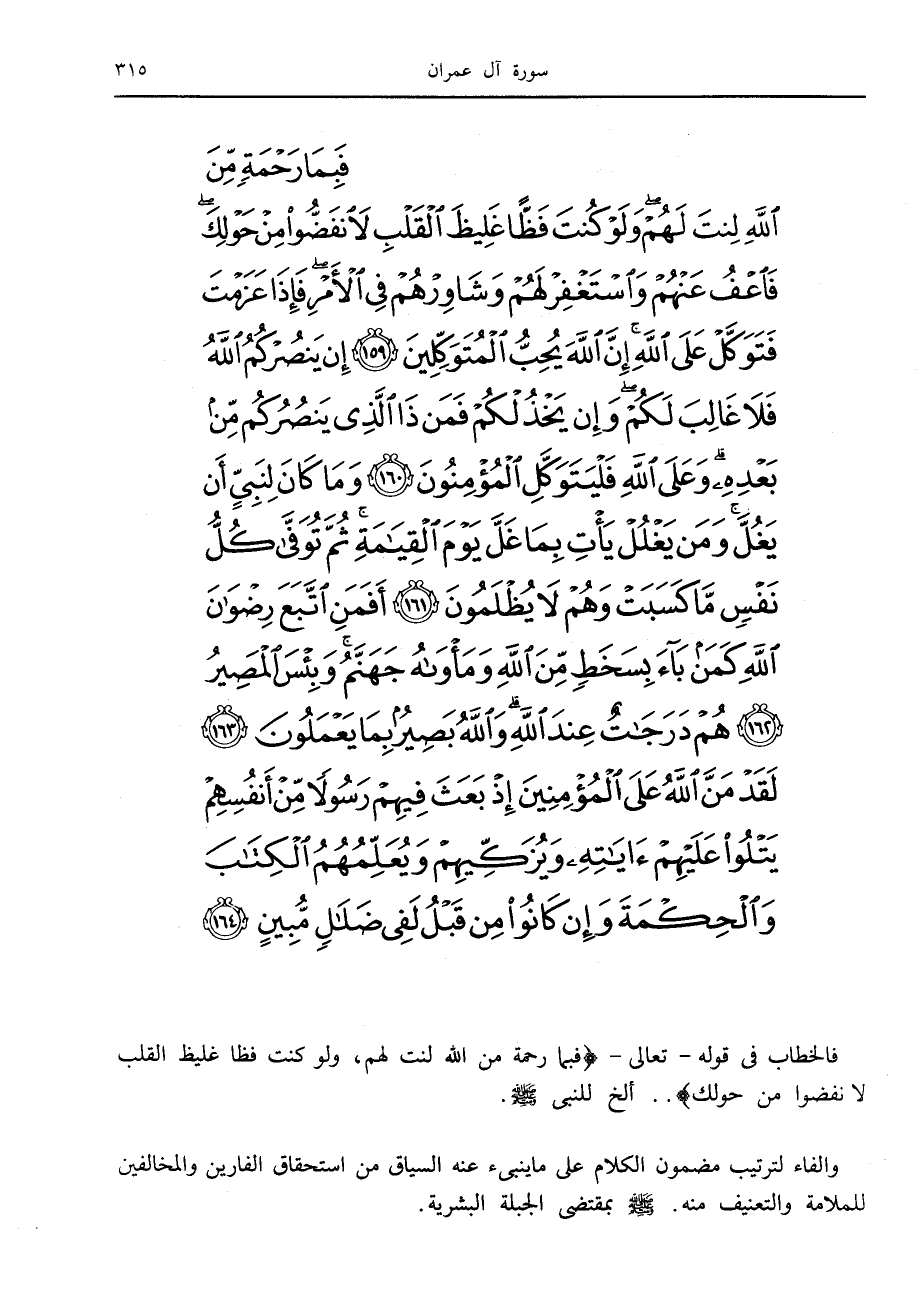 سورة آل عمران ٣١٥
فَبِمَا رَحْمَةٍ مِّنَ
ٱللَّهِ لِنتَ لَهُمْ ۖ وَلَوْ كُنتَ فَظًّا غَلِيظَ ٱلْقَلْبِ لَٱنفَضُّوا۟ مِنْ حَوْلِكَ ۖ
فَٱعْفُ عَنْهُمْ وَٱسْتَغْفِرْ لَهُمْ وَشَاوِرْهُمْ فِى ٱلْأَمْرِ ۖ فَإِذَا عَزَمْتَ
فَتَوَكَّلْ عَلَى ٱللَّهِ ۚ إِنَّ ٱللَّهَ يُحِبُّ ٱلْمُتَوَكِّلِينَ ١٥٩ إِن يَنصُرْكُمُ ٱللَّهُ
فَلَا غَالِبَ لَكُمْ ۖ وَإِن يَخْذُلْكُمْ فَمَن ذَا ٱلَّذِى يَنصُرُكُم مِّنۢ
بَعْدِهِۦ ۗ وَعَلَى ٱللَّهِ فَلْيَتَوَكَّلِ ٱلْمُؤْمِنُونَ ١٦٠ وَمَا كَانَ لِنَبِىٍّ أَن
يَغُلَّ ۚ وَمَن يَغْلُلْ يَأْتِ بِمَا غَلَّ يَوْمَ ٱلْقِيَـٰمَةِ ۚ ثُمَّ تُوَفَّىٰ كُلُّ
نَفْسٍ مَّا كَسَبَتْ وَهُمْ لَا يُظْلَمُونَ ١٦١ أَفَمَنِ ٱتَّبَعَ رِضْوَٰنَ
ٱللَّهِ كَمَنۢ بَآءَ بِسَخَطٍ مِّنَ ٱللَّهِ وَمَأْوَىٰهُ جَهَنَّمُ ۚ وَبِئْسَ ٱلْمَصِيرُ
١٦٢ هُمْ دَرَجَـٰتٌ عِندَ ٱللَّهِ ۗ وَٱللَّهُ بَصِيرٌۢ بِمَا يَعْمَلُونَ ١٦٣
لَقَدْ مَنَّ ٱللَّهُ عَلَى ٱلْمُؤْمِنِينَ إِذْ بَعَثَ فِيهِمْ رَسُولًا مِّنْ أَنفُسِهِمْ
يَتْلُوا۟ عَلَيْهِمْ ءَايَـٰتِهِۦ وَيُزَكِّيهِمْ وَيُعَلِّمُهُمُ ٱلْكِتَـٰبَ
وَٱلْحِكْمَةَ وَإِن كَانُوا۟ مِن قَبْلُ لَفِى ضَلَـٰلٍ مُّبِينٍ ١٦٤
فالخطاب فى قوله - تعالى - ﴿فبما رحمة من الله لنت لهم، ولو كنت فظا غليظ القلب
لا نفضوا من حولك﴾.. ألخ للنبى ﷺ.
والفاء لترتيب مضمون الكلام على ماينبىء عنه السياق من استحقاق الفارين والمخالفين
للملامة والتعنيف منه. ﷺ بمقتضى الجبلة البشرية.